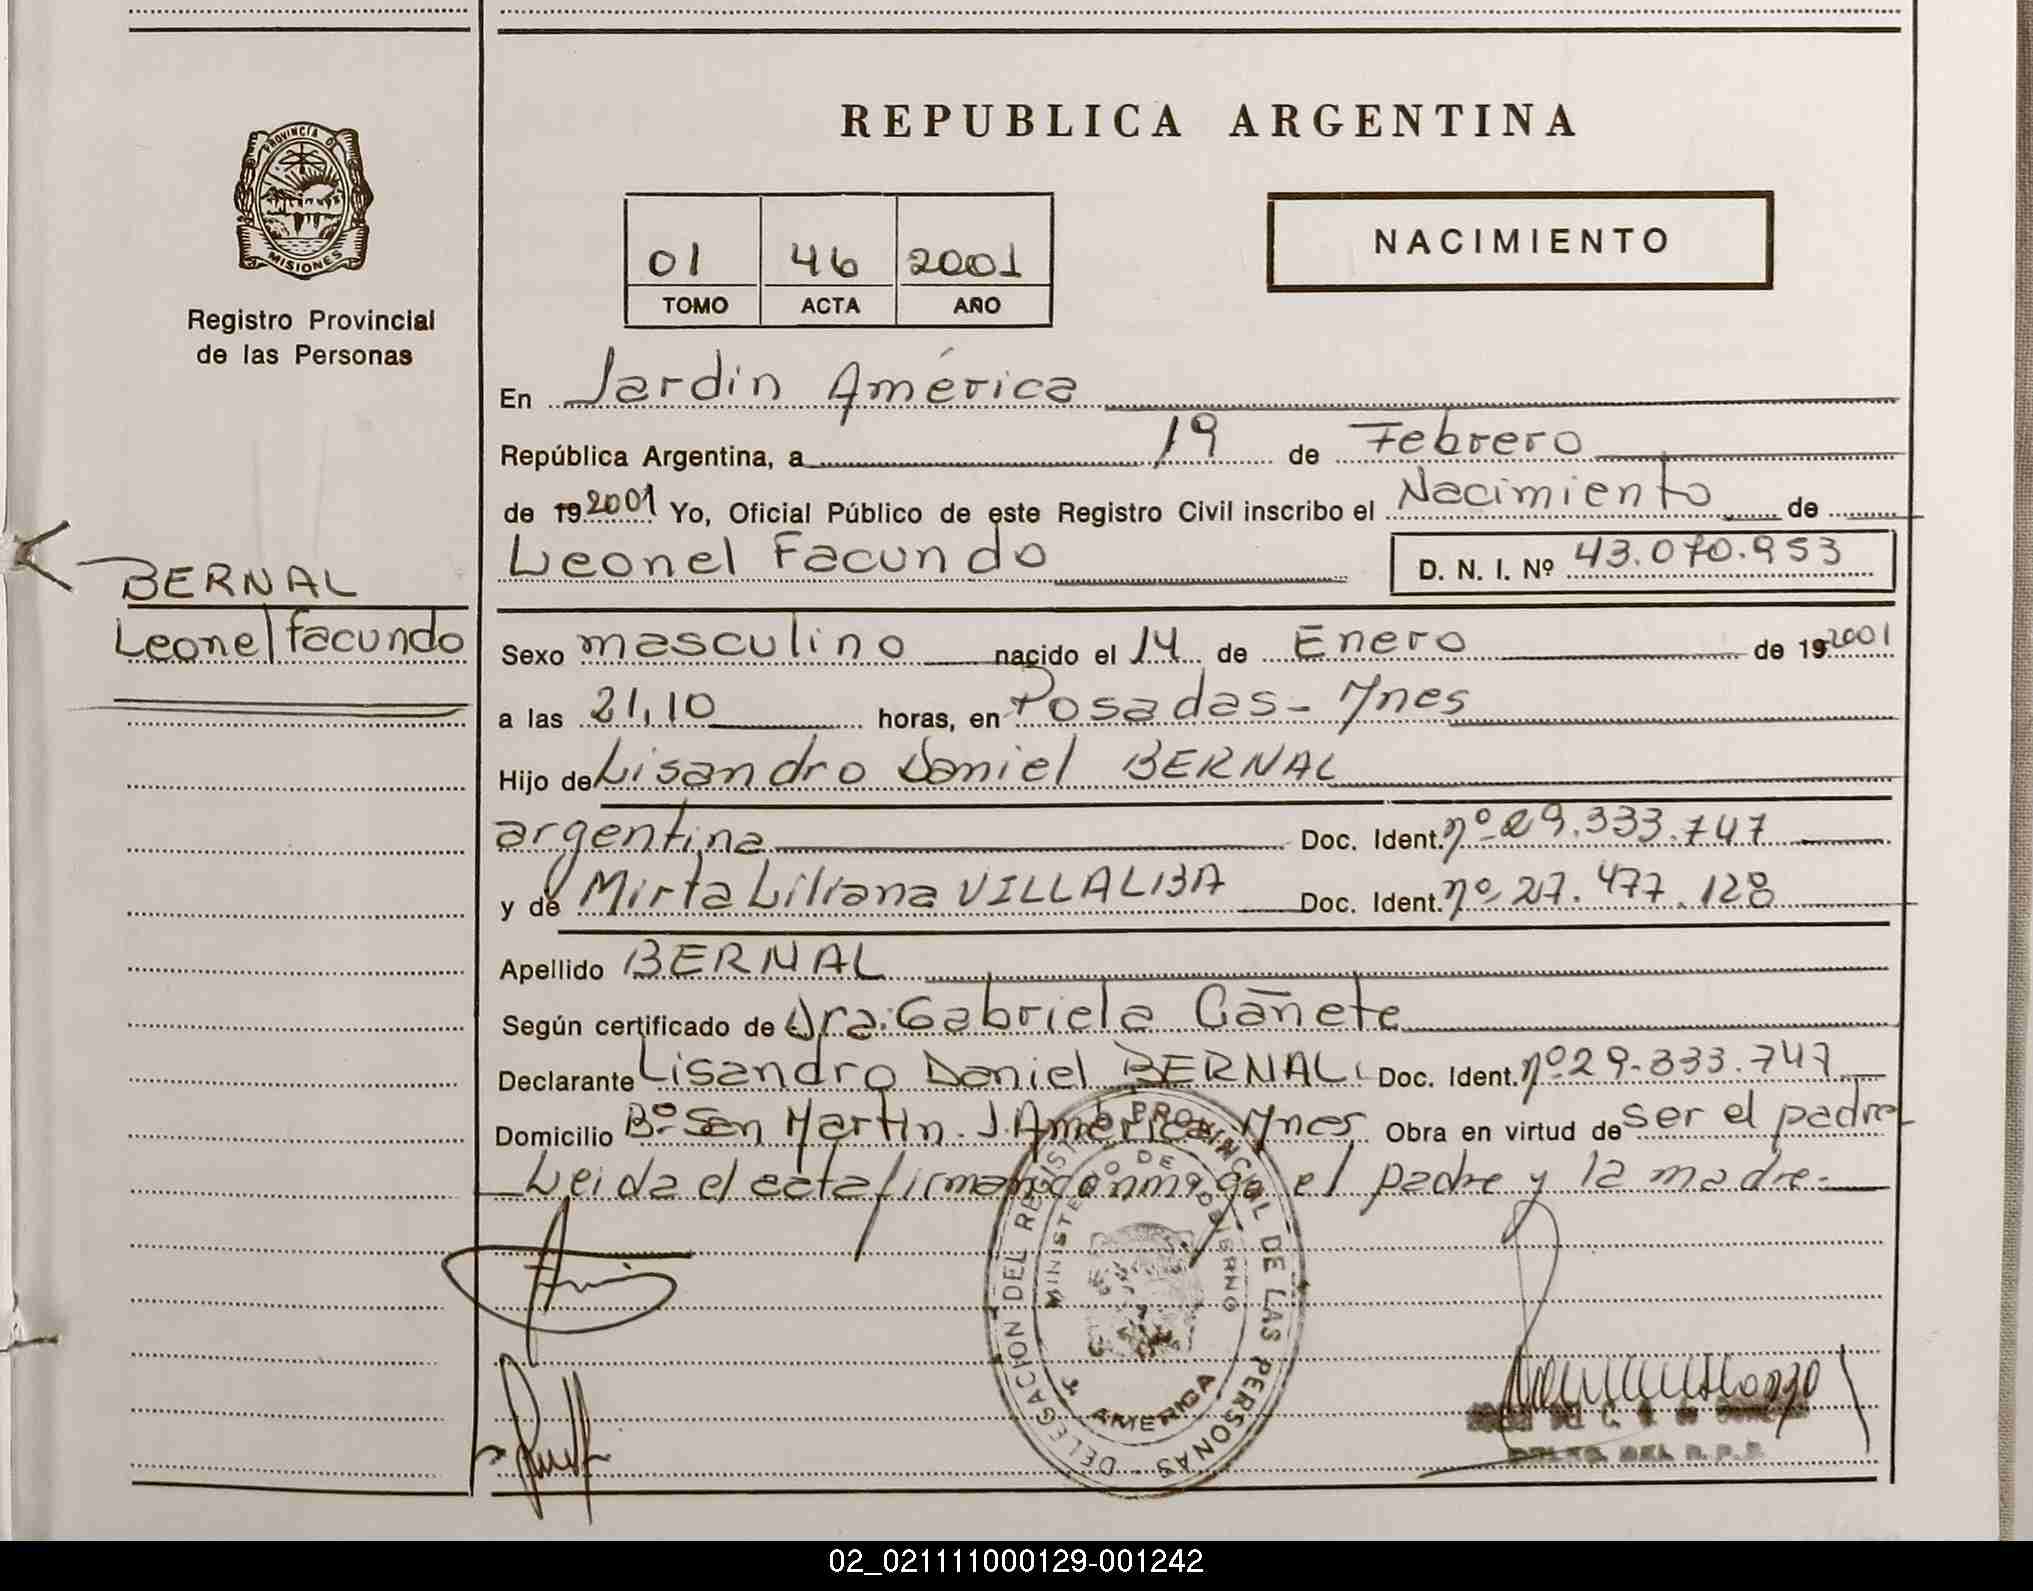 REPUBLICA ARGENTINA
PROVINCIA D
MISIONES
Registro Provincial
de las Personas
01 46 2001
TOMO ACTA AÑO
NACIMIENTO
En Jardin América
República Argentina, a 19 de Febrero
de 19 2001 Yo, Oficial Público de este Registro Civil inscribo el Nacimiento de
Leonel Facundo D. N. I. Nº 43.070.953
BERNAL
Leonel facundo
Sexo masculino nacido el 14 de Enero de 19 2001
a las 21,10 horas, en Posadas - Mnes
Hijo de Lisandro Daniel BERNAL
argentina Doc. Ident. nº 29.333.747
y de Mirta Liliana VILLALBA Doc. Ident. nº 27.477.128
Apellido BERNAL
Según certificado de Dra: Gabriela Cañete
Declarante Lisandro Daniel BERNAL Doc. Ident. nº 29.333.747
Domicilio Bº San Martin. J. América Mnes Obra en virtud de ser el padre
Leida el acta firman conmigo el padre y la madre.-
DELEGACION DEL REGISTRO PROVINCIAL DE LAS PERSONAS
MINISTERIO DE GOBIERNO
J. AMERICA
02_021111000129-001242